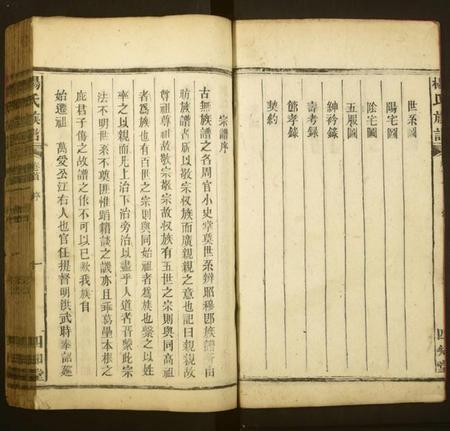 楊氏族譜
世系圖
陽宅圖
陰宅圖
五服圖
紳衿錄
壽考錄
節孝錄
契約
四知堂
宗譜序
古無族譜之名周官小史掌奠世系辨昭穆即族譜所由
昉族譜者所以敬宗收族而廣親親之意也記曰親親故
尊祖尊祖故敬宗敬宗故收族有五世之宗則與同高祖
者為族也有百世之宗則與同始祖者為族也繫之以姓
率之以親而凡上治下治旁治以盡乎人道者胥繫此宗
法不明世系不奠匪惟蹈籍談之譏亦且乖葛學本根之
庇君子傷之故譜之作不可以已歟我族自
始遷祖 萬愛公江右人也官任提督明洪武時奉詔
楊氏族譜
序
一
四知堂